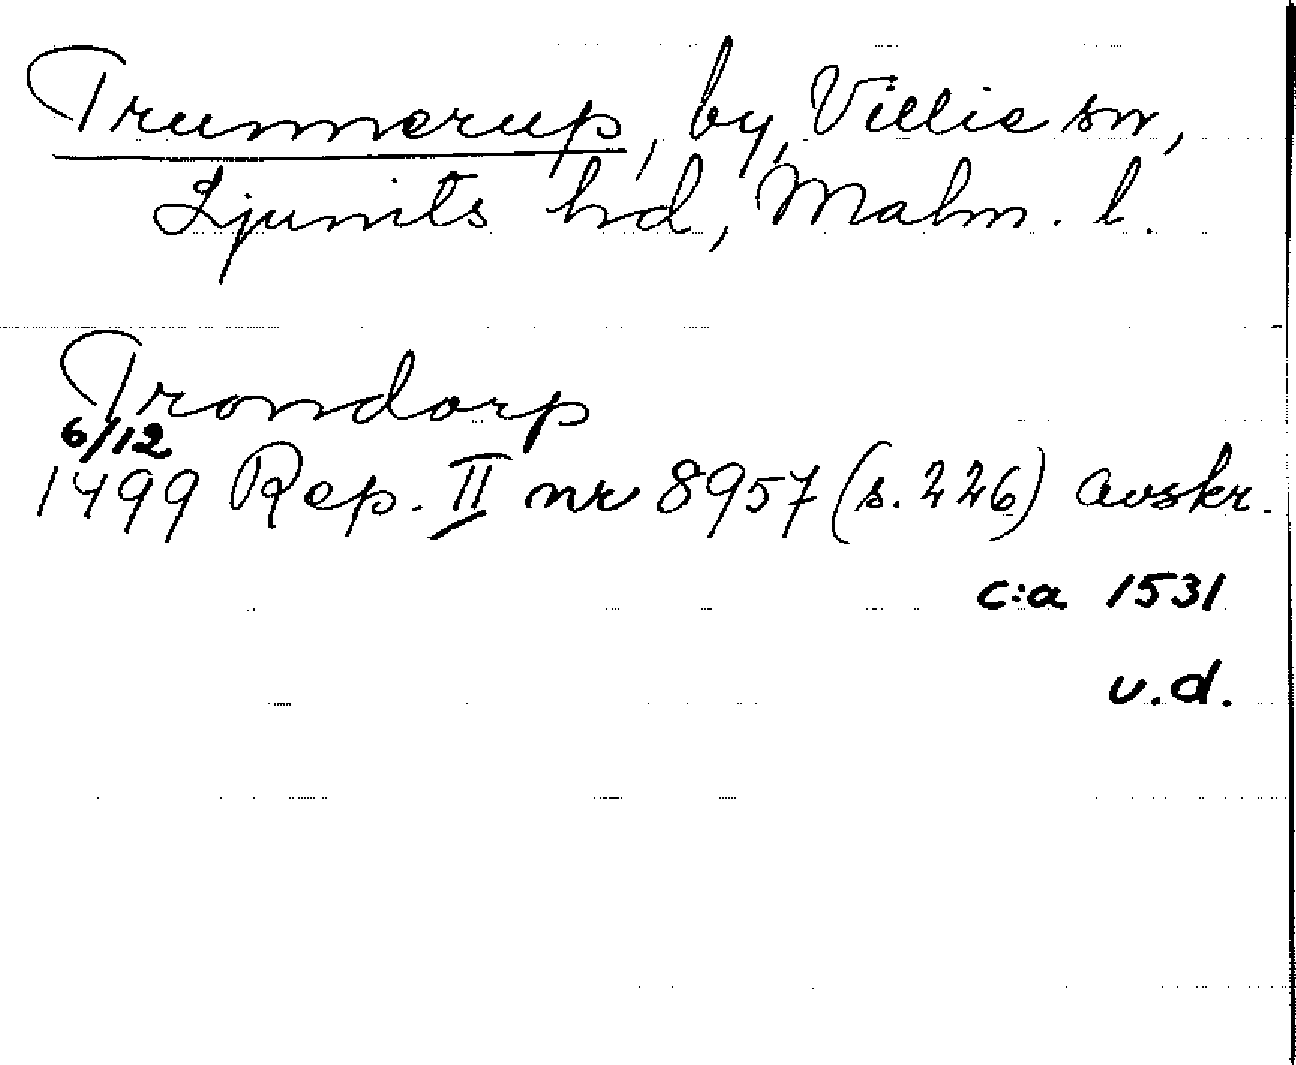 Trunnerup, by, Villie sn,
Ljunits hd, Malm. l.
Trondorp
6/12
1499 Rep. II nr 8957 (s. 226) avskr.
c:a 1531
u.d.